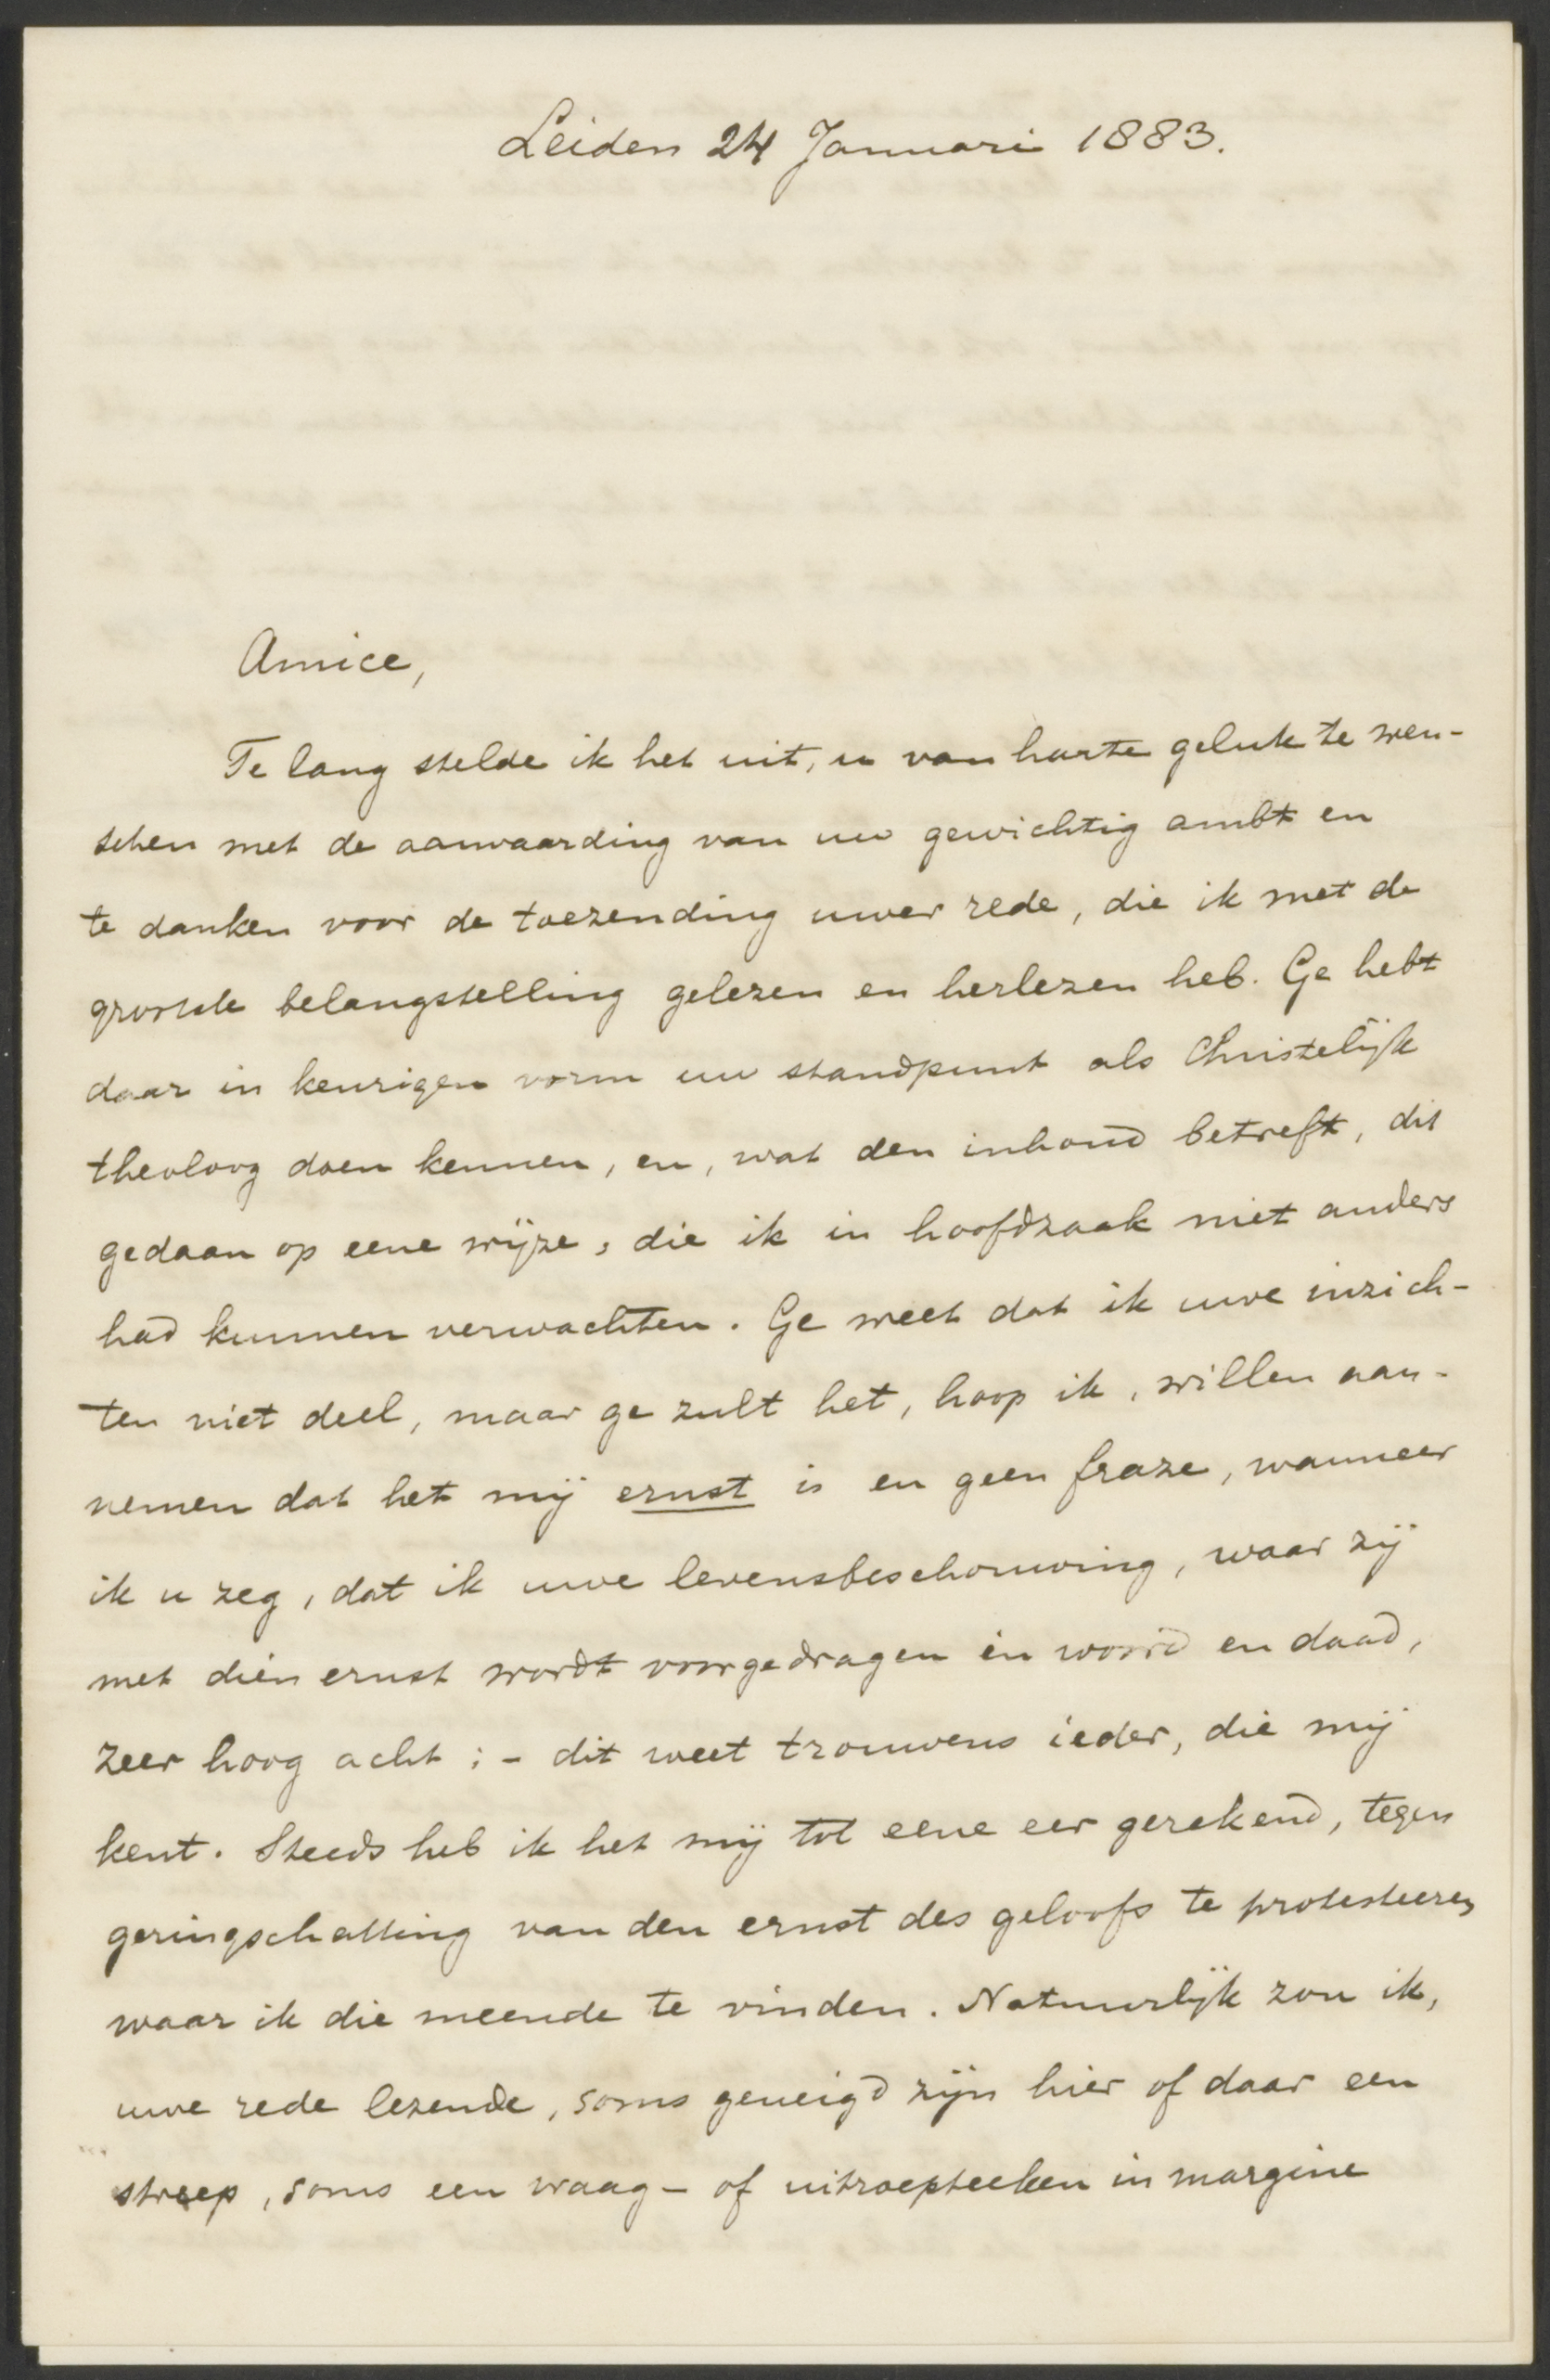 Leiden 24 Januari 1883.
Amice,
Te lang stelde ik het uit, u van harte geluk te wen-
schen met de aanvaarding van uw gewichtig ambt en
te danken voor de toezending uwer rede, die ik met de
grootste belangstelling gelezen en herlezen heb. Ge hebt
daar in keurigen vorm uw standpunt als Christelijk
theoloog doen kennen, en, wat den inhoud betreft, dit
gedaan op eene wijze, die ik in hoofdzaak niet anders
had kunnen verwachten. Ge weet dat ik uwe inzich-
ten niet deel, maar ge zult het, hoop ik, willen aan-
nemen dat het mij ernst is en geen fraze, wanneer
ik u zeg, dat ik uwe levensbeschouwing, waar zij
met dien ernst wordt voorgedragen in woord en daad,
zeer hoog acht; - dit weet trouwens ieder, die mij
kent. Steeds heb ik het mij tot eene eer gerekend, tegen
geringschatting van den ernst des geloofs te protesteeren
waar ik die meende te vinden. Natuurlijk zou ik,
uwe rede lezende, soms geneigd zijn hier of daar een
streep, soms een vraag- of uitroepteeken in margine